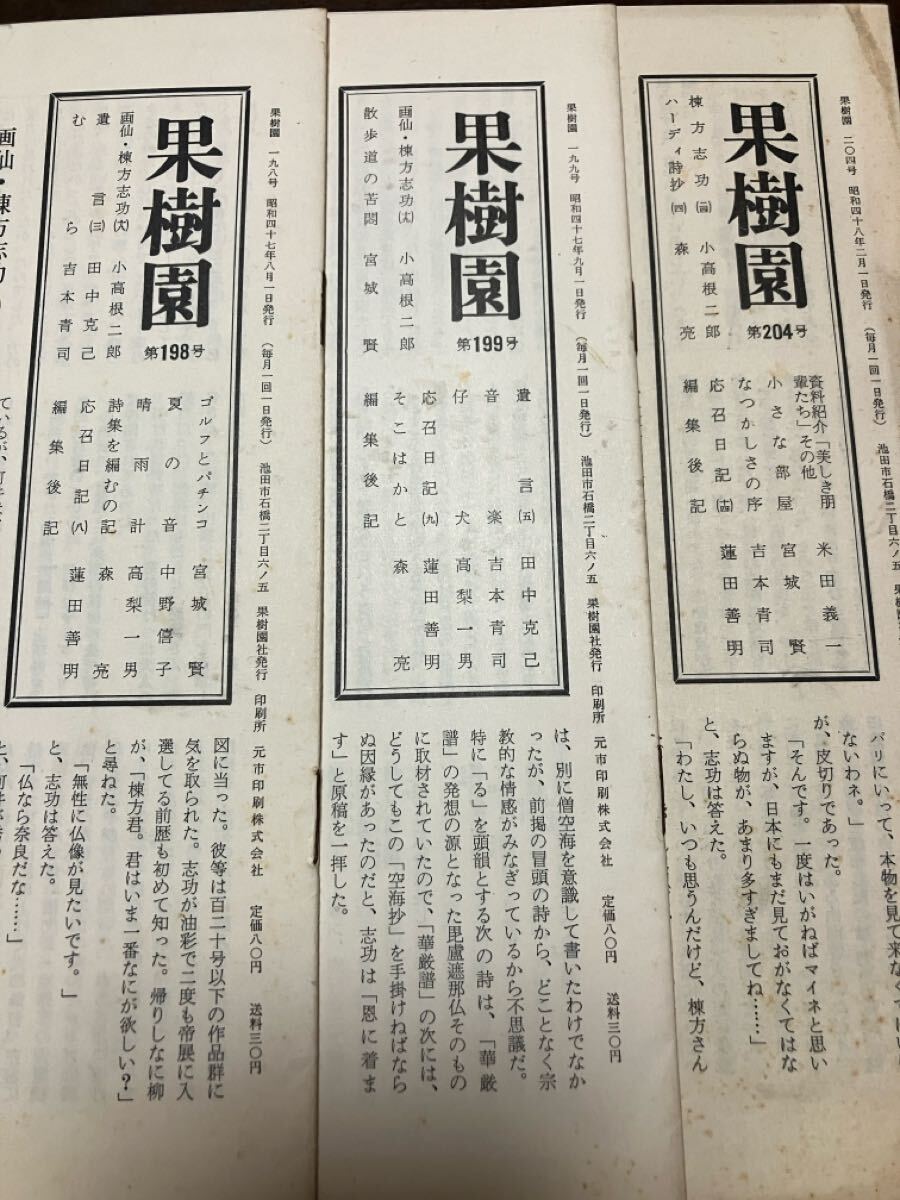 果樹園 二〇四号 昭和四十八年二月一日発行 (毎月一回一日発行) 池田市石橋二丁目六ノ五 果樹園
果樹園
第204号
棟方志功 小高根二郎
ハーディ詩抄(四) 森 亮
資料紹介「美しき朋輩たち」その他 米田義一
小さな部屋 宮城 賢
なつかしさの序 吉本青司
応召日記 蓮田善明
編集後記
パリにいって、本物を見て来なくてはい
ないわネ。」
が、皮切りであった。
「そんです。一度はいがねばマイネと思い
ますが、日本にもまだ見ておがなくてはな
らぬ物が、あまり多すぎましてね……」
と、志功は答えた。
「わたし、いつも思うんだけど、棟方さん
果樹園 一九九号 昭和四十七年九月一日発行 (毎月一回一日発行) 池田市石橋二丁目六ノ五 果樹園社発行 印刷所 元市印刷株式会社 定価八〇円 送料三〇円
果樹園
第199号
画仙・棟方志功 小高根二郎
散歩道の苦悶 宮城 賢
遺言(五) 田中克己
音楽 吉本青司
仔犬 高梨一男
応召日記(九) 蓮田善明
そこはかと 森 亮
編集後記
は、別に僧空海を意識して書いたわけでなか
ったが、前掲の冒頭の詩から、どことなく宗
教的な情感がみなぎっているから不思議だ。
特に「る」を頭韻とする次の詩は、「華厳
譜」の発想の源となった毘盧遮那仏そのもの
に取材されていたので、「華厳譜」の次には、
どうしてもこの「空海抄」を手掛けねばなら
ぬ因縁があったのだと、志功は「恩に着ま
す」と原稿を一拝した。
果樹園 一九八号 昭和四十七年八月一日発行 (毎月一回一日発行) 池田市石橋二丁目六ノ五 果樹園社発行 印刷所 元市印刷株式会社 定価八〇円 送料三〇円
果樹園
第198号
画仙・棟方志功 小高根二郎
遺言(三) 田中克己
むら 吉本青司
ゴルフとパチンコ 宮城 賢
夏の音 中野僖子
晴雨計 高梨一男
詩集を編むの記 森 亮
応召日記(八) 蓮田善明
編集後記
図に当った。彼等は百二十号以下の作品群に
気を取られた。志功が油彩で二度も帝展に入
選してる前歴も初めて知った。帰りしなに柳
が、「棟方君。君はいま一番なにが欲しい?」
と尋ねた。
「無性に仏像が見たいです。」
と、志功は答えた。
「仏なら奈良だな……」
画仙・棟方志功